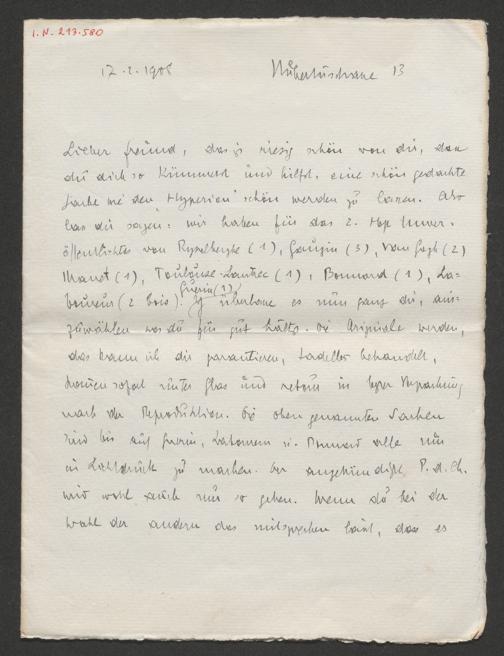 I.N. 213.580
17.2.1908 Hubertusstrasse 13
Lieber freund, das ist riesig schön von dir, dass
du dich so kümmerst und hilfst, eine schön gedachte
Sache wie den Hyperion schön werden zu lassen. Also
lass dir sagen: wir haben für das 2. Unver-
öffentlichtes von Rysselberghe (1), Gaugin (3), Van Gogh (2)
Manet (1), Toulouse-Lautrec (1), Bonnard (1), La-
Guerin (1)
boureur (2 bois). Ich überlasse es nun ganz dir, aus-
zuwählen was du für gut hältst. Die Originale werden,
das kann ich dir garantieren, tadellos behandelt,
kommen sofort unter Glas und retour in Verpackung
nach der Reproduktion. Die oben genannten Sachen
sind bis auf Guerin, Laboureur u. Bonnard alle nur
in Lichtdruck zu machen. Der angekündigte P. d. Ch.
wird wohl auch nur so gehen. Wenn du bei der
Wahl der andern das mitsprechen lässt, dass es